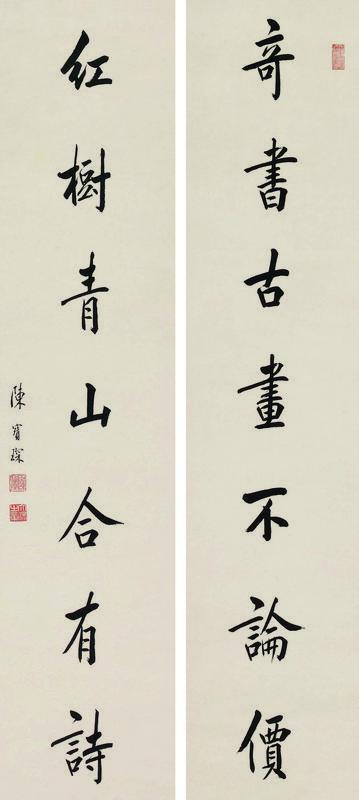 奇書古畫不論價
紅樹青山合有詩
陳寶琛